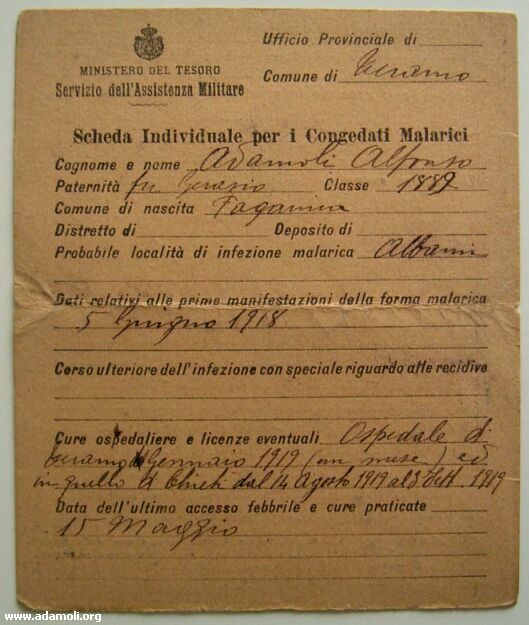 Ufficio Provinciale di
MINISTERO DEL TESORO
Servizio dell'Assistenza Militare
Comune di Teramo
Scheda Individuale per i Congedati Malarici
Cognome e nome Adamoli Alfonso
Paternità fu Gerasio Classe 1889
Comune di nascita
Distretto di Deposito di
Probabile località di infezione malarica Albania
Dati relativi alle prime manifestazioni della forma malarica
5 Giugno 1918
Corso ulteriore dell'infezione con speciale riguardo alle recidive
Cure ospedaliere e licenze eventuali Ospedale di
Teramo Gennaio 1919 (un mese) ed
in quello di Chieti dal 14 Agosto 1919 al 3 Sett. 1919
Data dell'ultimo accesso febbrile e cure praticate
15 Maggio
www.adamoli.org